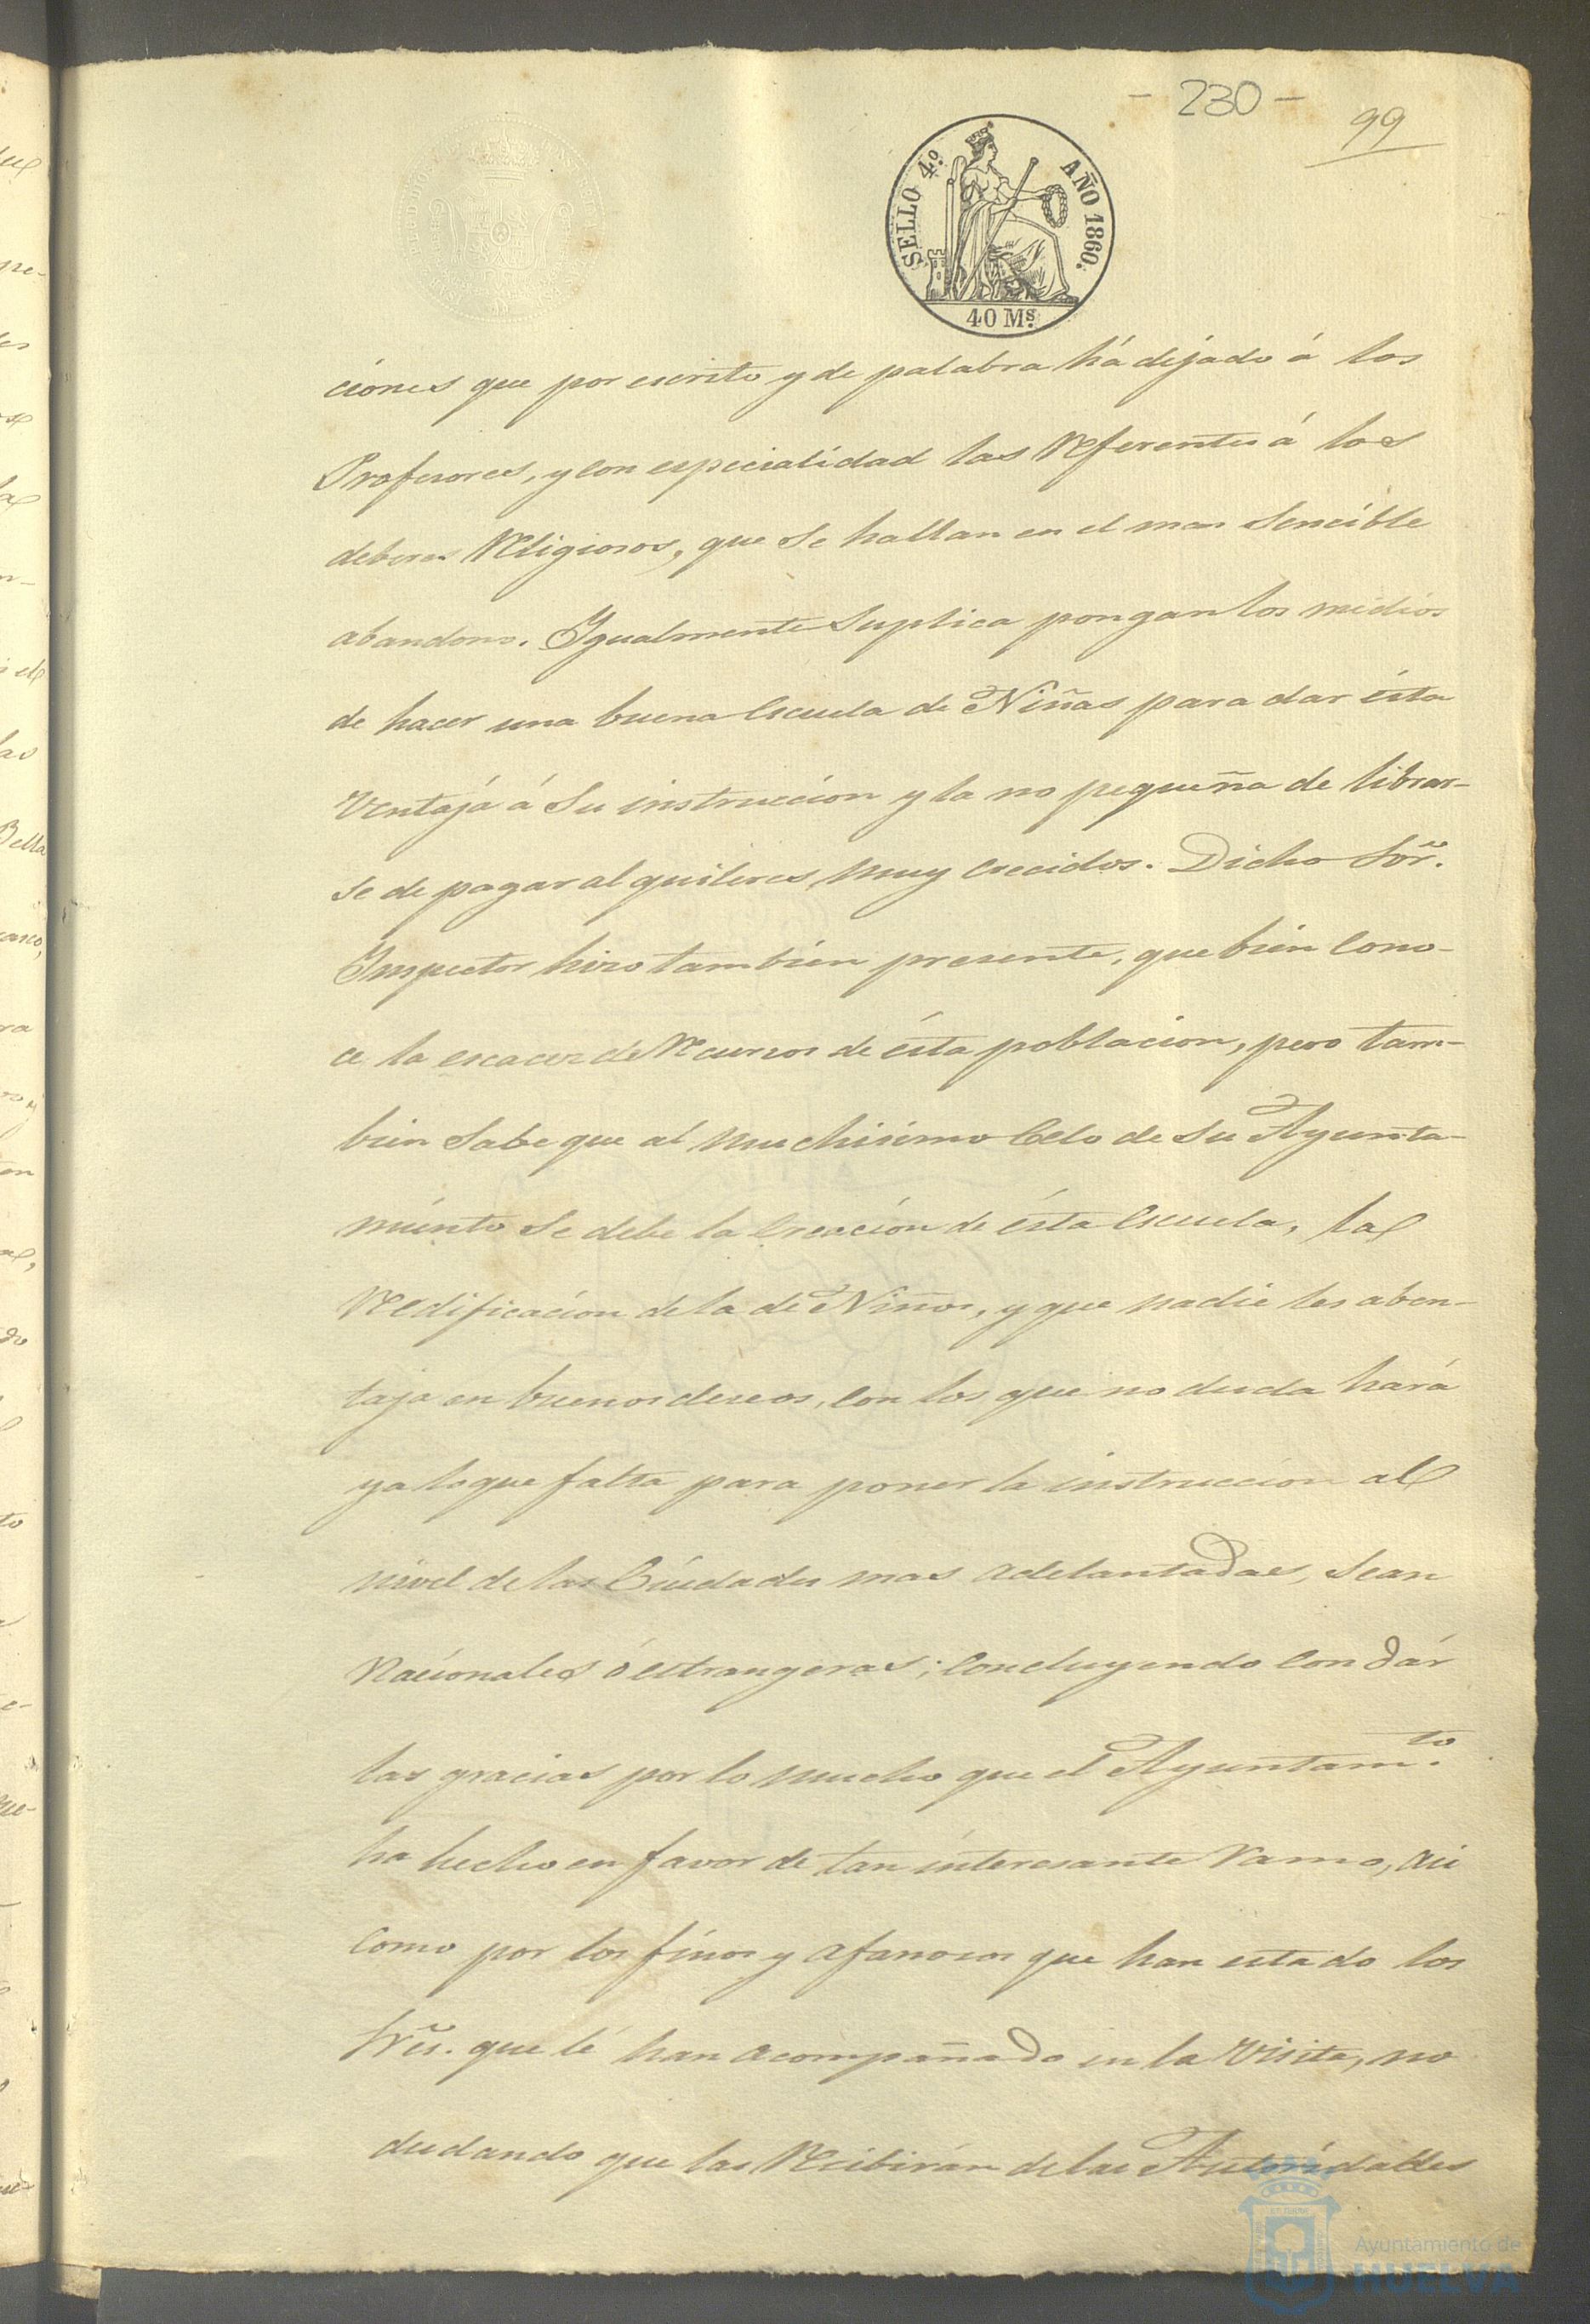 - 230 -
99
SELLO 4.º AÑO 1860.
40 Ms.
ciones que por escrito y de palabra há dejado á los
Profesores, y con especialidad las Referentes á los
deberes Religiosos, que se hallan en el mas sencible
abandono. Igualmente suplica pongan los medios
de hacer una buena Escuela de Niñas para dar ésta
Ventaja á su instruccion y la no pequeña de librar-
se de pagar alquileres muy crecidos. Dicho Sõr.
Inspector hizo tambien presente, que bien cono-
ce la escacez de Recursos de ésta poblacion, pero tam-
bien sabe que al muchisimo celo de su Ayunta-
miento se debe la Creacion de ésta Escuela, la
Redificacion de la de Niños, y que nadie les aben-
taja en buenos deseos, con los que no duda hará
ya lo que falta para poner la instruccion al
nivel de las Ciudades mas adelantadas, sean
Nacionales ó estrangeras; concluyendo con dár
las gracias por lo mucho que el Ayuntam.to
ha hecho en favor de tan interesante Ramo, asi
como por los finos y afanosos que han estado los
Sr̃es. que lé han acompañado en la Visita, no
dudando que las Recibirán de las Autoridades
Ayuntamiento de
HUELVA